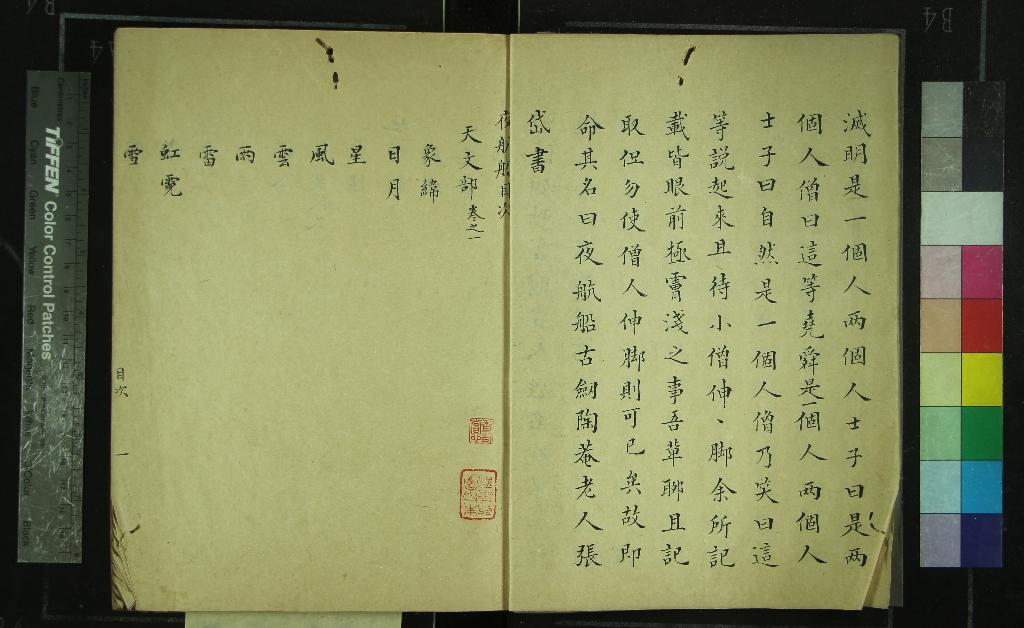 滅明是一個人兩個人士子曰是兩
個人僧曰這等堯舜是一個人兩個人
士子曰自然是一個人僧乃笑曰這
等說起來且待小僧伸、脚余所記
載皆眼前極膚淺之事吾輩聊且記
取但勿使僧人伸脚則可已矣故即
命其名曰夜航船古劍陶菴老人張
岱書
夜航船目次
天文部卷之一
象緯
日月
星
風
雲
雨
雷
虹霓
雪
目次
一
TIFFEN Color Control Patches
Blue
Cyan
Green
Yellow
Red
Magenta
White
3/Color
Black
Centimetres
B4
B4